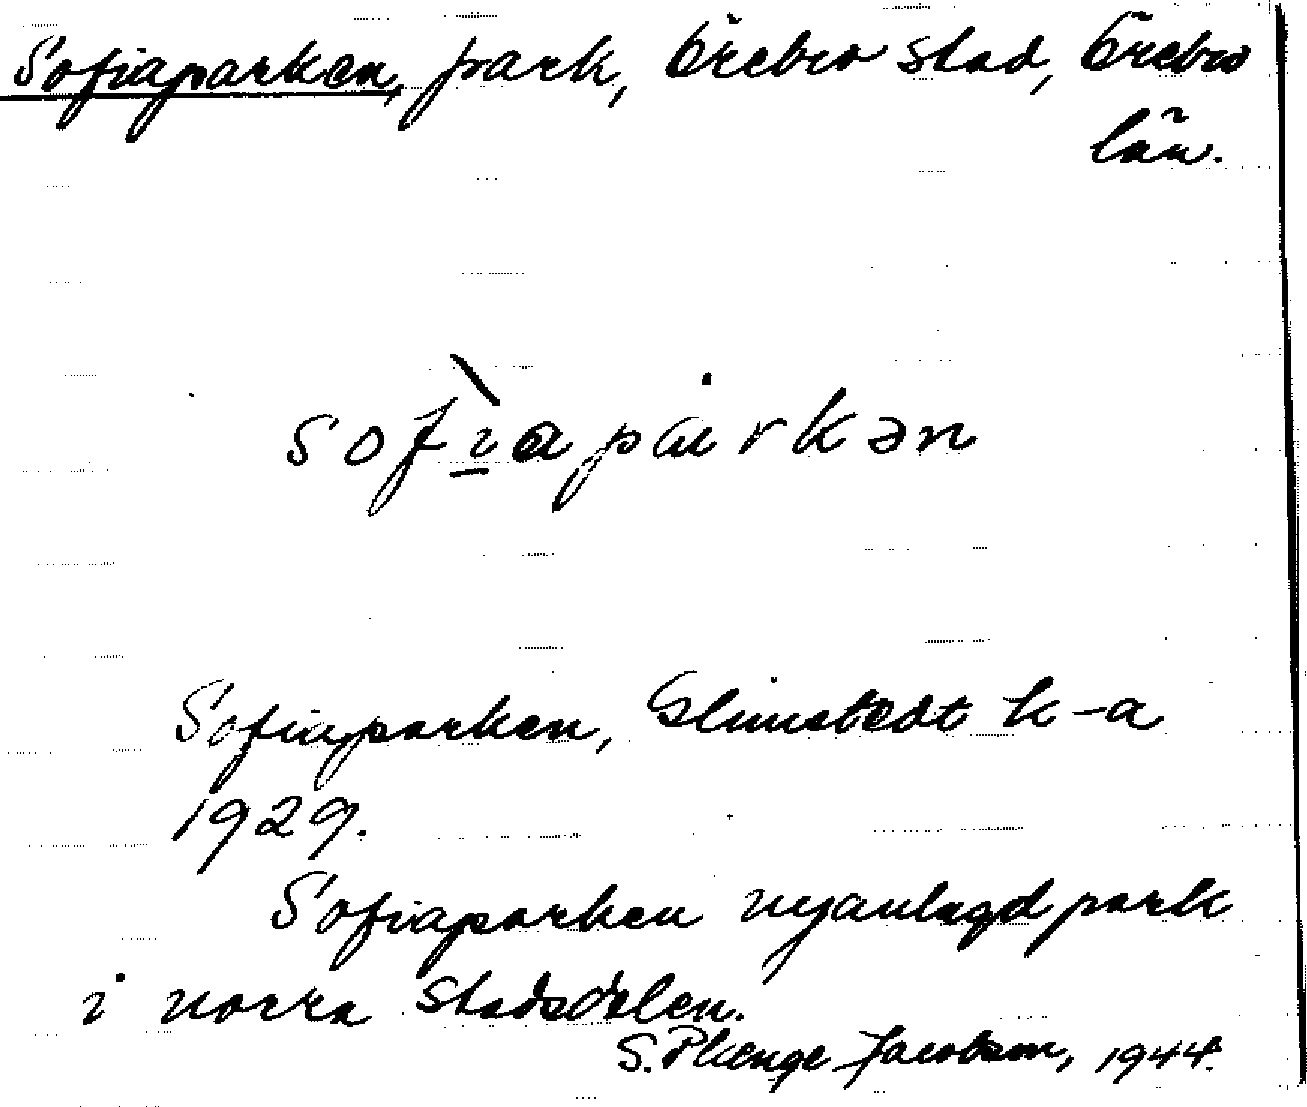 Sofiaparken, park, Örebro stad, Örebro
län.
sofìapàrkən
Sofiaparken, Glimstedt k-a
1929.
Sofiaparken nyanlagd park
i norra stadsdelen.
S. Plenge Jacobson, 1944.